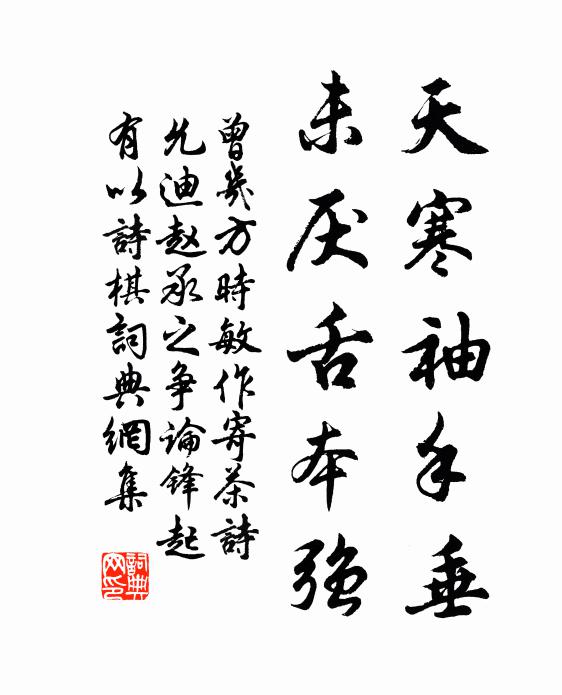 天寒袖手垂
未厌舌本强
曾幾方時敏作寄茶詩
允迪赵承之争论锋起
有以詩棋詞典網集
詞典
网印